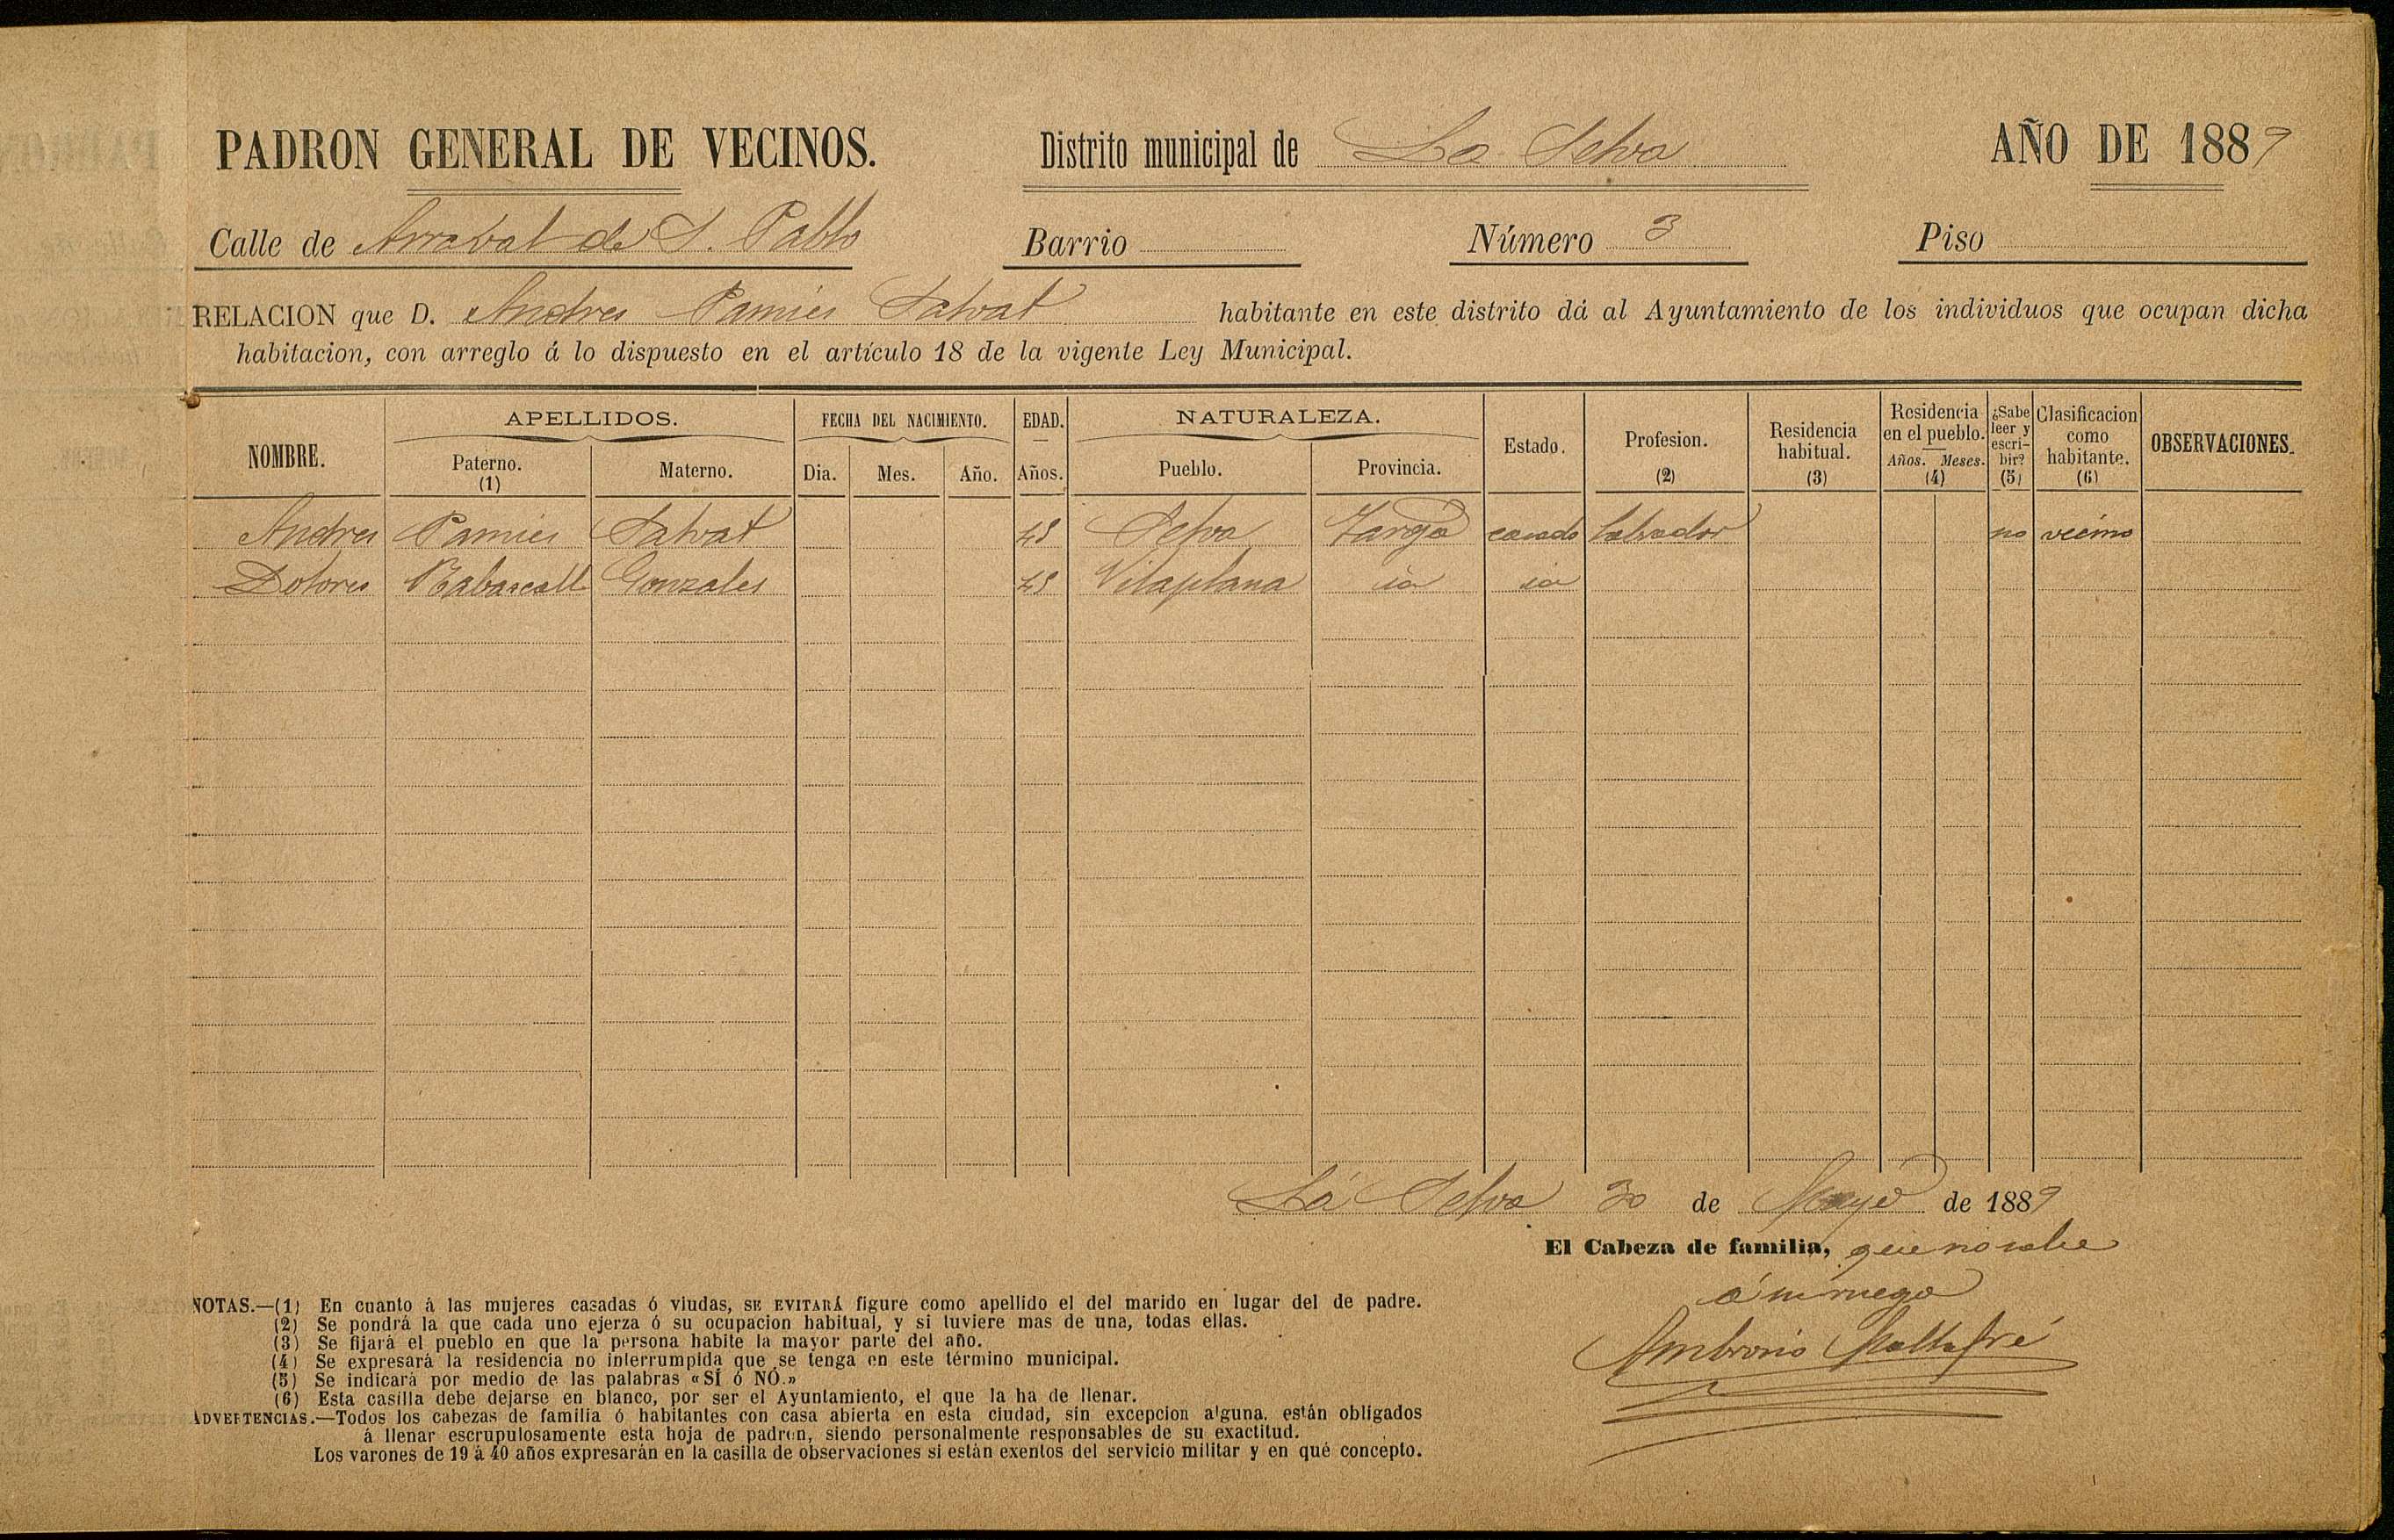 PADRON GENERAL DE VECINOS. Distrito municipal de La Selva AÑO DE 1889
Calle de Arrabal de S. Pablo Barrio Número 3 Piso
RELACION que D. Andres Pamies Salvat habitante en este distrito dá al Ayuntamiento de los individuos que ocupan dicha
habitacion, con arreglo á lo dispuesto en el artículo 18 de la vigente Ley Municipal.
NOMBRE. APELLIDOS. Paterno. (1) Materno. FECHA DEL NACIMIENTO. Dia. Mes. Año. EDAD. Años. NATURALEZA. Pueblo. Provincia. Estado. Profesion. (2) Residencia habitual. (3) Residencia en el pueblo. Años. Meses. (4) ¿Sabe leer y escribir? (5) Clasificacion como habitante. (6) OBSERVACIONES.
Andres Pamies Salvat Selva Targa casado labrador no vecino
Dolores Rabascall Gonzales Vilaplana
La Selva 30 de Mayo de 1889
El Cabeza de familia, que no sabe
á mi ruego
Ambrosio Maltafré
NOTAS.—(1) En cuanto á las mujeres casadas ó viudas, SE EVITARÁ figure como apellido el del marido en lugar del de padre.
(2) Se pondrá la que cada uno ejerza ó su ocupacion habitual, y si tuviere mas de una, todas ellas.
(3) Se fijará el pueblo en que la persona habite la mayor parte del año.
(4) Se expresará la residencia no interrumpida que se tenga en este término municipal.
(5) Se indicará por medio de las palabras «SÍ ó NÓ.»
(6) Esta casilla debe dejarse en blanco, por ser el Ayuntamiento, el que la ha de llenar.
ADVERTENCIAS.—Todos los cabezas de familia ó habitantes con casa abierta en esta ciudad, sin excepcion alguna, están obligados
á llenar escrupulosamente esta hoja de padron, siendo personalmente responsables de su exactitud.
Los varones de 19 á 40 años expresarán en la casilla de observaciones si están exentos del servicio militar y en qué concepto.